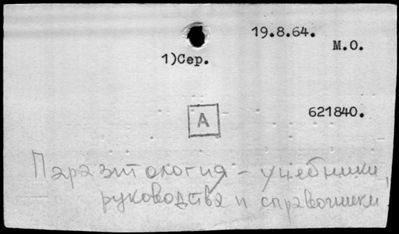 19.8.64.
М.О.
1)Сер.
А
621840.
Паразитология – учебники,
руководства и справочники